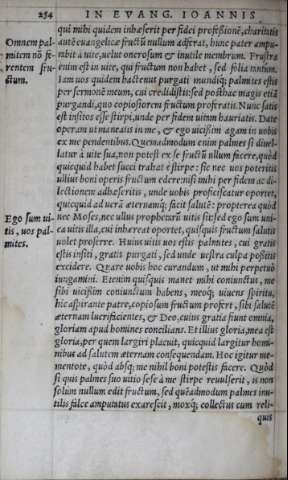 254 IN EVANG. IOANNIS
qui mihi quidem inhæserit per fidei professionē, charitatis
Omnem pal-
autē euangelicæ fructū nullum adferat, hunc pater ampu-
mitem nō fe-
tabit à uite, uelut onerosum & inutile membrum. Frustra
rentem fru-
enim est in uite, qui fructum non habet, sed folia tantum.
ctum.
Iam uos quidem hactenus purgati mundiq́; palmites estis
per sermonē meum, cui credidistis: sed posthac magis etiā
purgandi, quo copiosiorem fructum proferatis. Nunc satis
est insitos esse stirpi, unde per fidem uitam hauriatis. Date
operam ut maneatis in me, & ego uicissim agam in uobis
ex me pendentibus. Quemadmodum enim palmes si diuel-
latur à uite sua, non potest ex se fructū ullum facere, quòd
quicquid habet succi trahat è stirpe: sic nec uos poteritis
ullius boni operis fructum ædere, nisi mihi per fidem ac di-
lectionem adhæseritis, unde uobis proficiscatur oportet,
quicquid ad uerā æternamq́; facit salutē: propterea quòd
Ego sum ui-
nec Moses, nec ullus prophetarū uitis sit: sed ego sum uni-
tis, uos pal-
ca uitis illa, cui inhæreat oportet, quisquis fructum salutis
mites.
uolet proferre. Huius uitis uos estis palmites, cui gratis
estis insiti, gratis purgati, sed unde uestra culpa positis
excidere. Quare uobis hoc curandum, ut mihi perpetuò
iungamini. Etenim quisquis manet mihi coniunctus, me
sibi uicissim coniunctum habens, meoq́; uiuens spiritu,
hic aspirante patre, copiosum fructum profert, sibi salutē
æternam lucrificientes, & Deo, cuius gratia fiunt omnia,
gloriam apud homines concilians. Et illius gloria, mea est
gloria, per quem largiri placuit, quicquid largitur homi-
nibus ad salutem æternam consequendam. Hoc igitur me-
mentote, quòd absq́; me nihil boni potestis facere. Quòd
si quis palmes suo uitio sese à me stirpe reuulserit, is non
solum nullum edit fructum, sed quēadmodum palmes inu-
tilis falce amputatus exarescit, moxq́; collectus cum reli-
quis